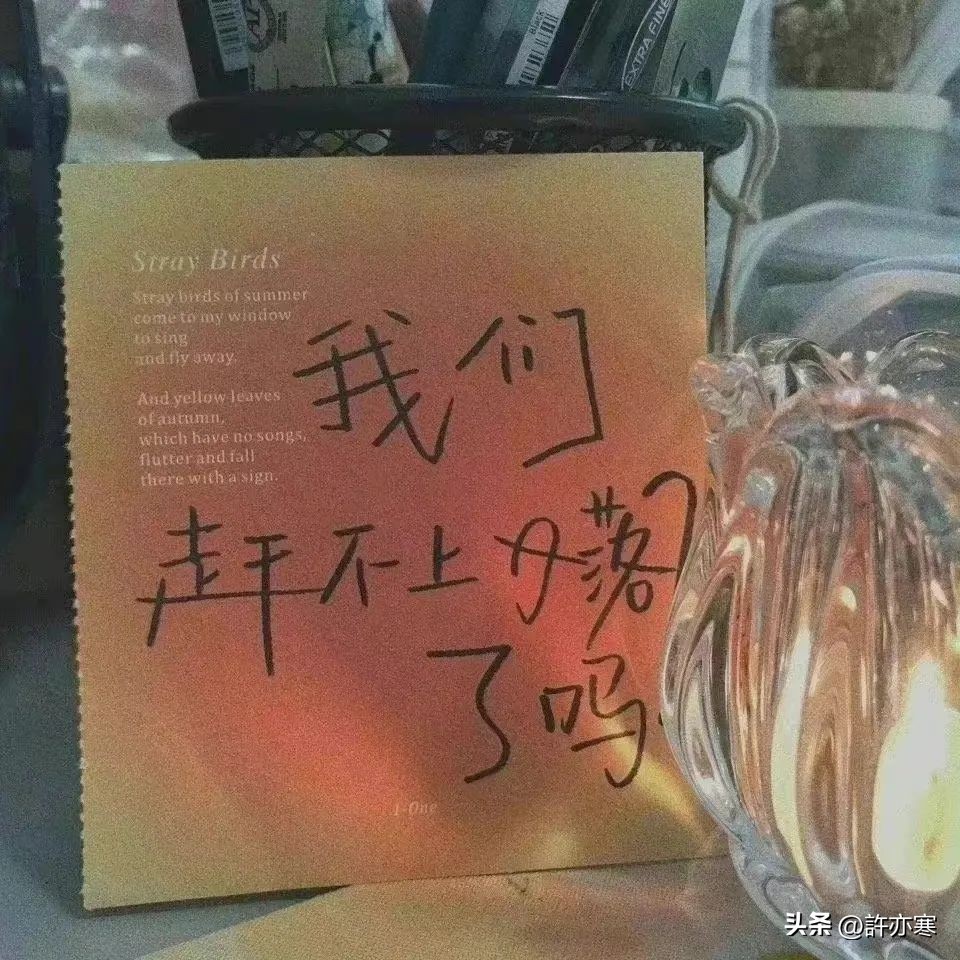 Black
EXTRA FINE
Stray Birds
Stray birds of summer
come to my window
to sing
and fly away.
And yellow leaves
of autumn,
which have no songs,
flutter and fall
there with a sign.
我们
赶不上落
了吗
i-One
头条 @許亦寒